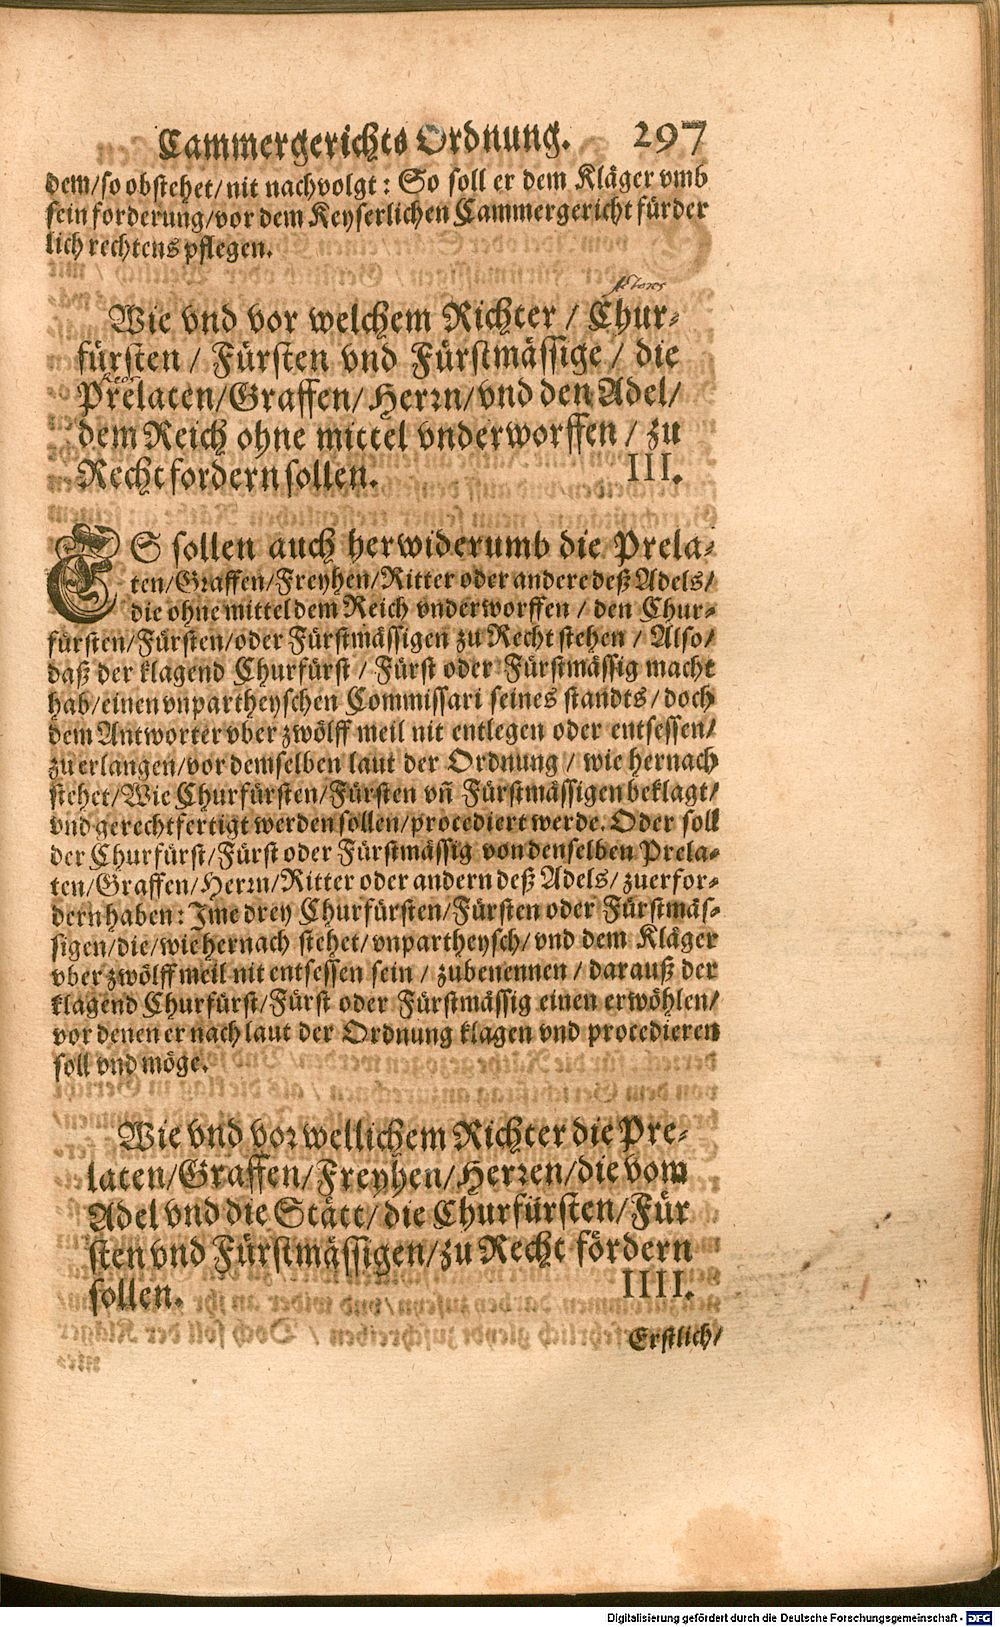 Cammergerichts Ordnung. 297
dem/so obstehet/nit nachvolgt: So soll er dem Kläger vmb
sein forderung/vor dem Keyserlichen Cammergericht fürder
lich rechtens pflegen.
Actores
Wie vnd vor welchem Richter / Chur-
fürsten / Fürsten vnd Fürstmässige / die
Reos
Prelaten/Graffen/Herrn/vnd den Adel/
dem Reich ohne mittel vnderworffen / zu
Recht fordern sollen. III.
ES sollen auch herwiderumb die Prela-
ten/Graffen/Freyhen/Ritter oder andere deß Adels/
die ohne mittel dem Reich vnderworffen / den Chur-
fürsten/Fürsten/oder Fürstmässigen zu Recht stehen / Also/
daß der klagend Churfürst / Fürst oder Fürstmässig macht
hab/einen vnpartheyschen Commissari seines standts / doch
dem Antworter vber zwölff meil nit entlegen oder entsessen/
zu erlangen/vor demselben laut der Ordnung / wie hernach
stehet/Wie Churfürsten/Fürsten vñ Fürstmässigen beklagt/
vnd gerechtfertigt werden sollen/procediert werde. Oder soll
der Churfürst/Fürst oder Fürstmässig von denselben Prela-
ten/Graffen/Herrn/Ritter oder andern deß Adels/ zuerfor-
dern haben: Ime drey Churfürsten/Fürsten oder Fürstmäs-
sigen/die/wie hernach stehet/vnpartheysch/vnd dem Kläger
vber zwölff meil nit entsessen sein / zubenennen / darauß der
klagend Churfürst/Fürst oder Fürstmässig einen erwöhlen/
vor denen er nach laut der Ordnung klagen vnd procedieren
soll vnd möge.
Wie vnd vor wellichem Richter die Pre-
laten/Graffen/Freyhen/Herren/die vom
Adel vnd die Stätt/die Churfürsten/Für
sten vnd Fürstmässigen/zu Recht fördern
sollen. IIII.
Erstlich/
Digitalisierung gefördert durch die Deutsche Forschungsgemeinschaft - DFG